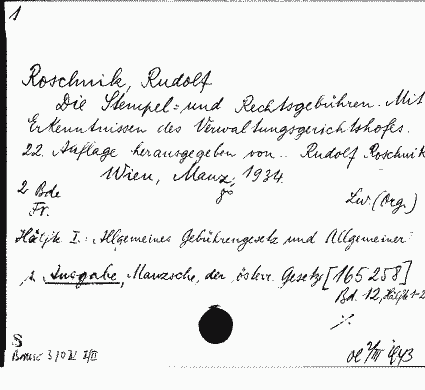 1
Roschnik, Rudolf
Die Stempel= und Rechtsgebühren. Mit
Erkenntnissen des Verwaltungsgerichtshofes.
22. Auflage herausgegeben von .. Rudolf Roschnik
Wien, Manz, 1934.
2 Bde
Fr.
Lw. (Org.)
Hälfte I.: Allgemeines Gebührengesetz und Allgemeiner
s. Ausgabe, Manzsche, der österr. Gesetze [165 258]
Bd. 12, Hälfte 1-2
S
III 1943